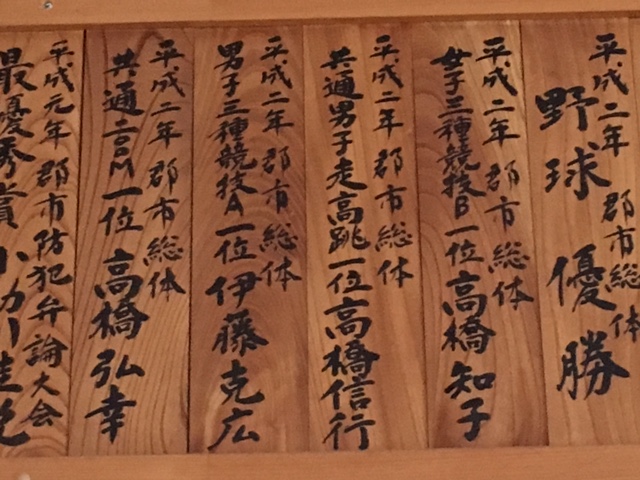 平成二年 郡市総体
野球 優勝
平成二年 郡市総体
女子三種競技B一位 高橋知子
平成二年 郡市総体
共通男子走高跳一位 高橋信行
平成二年 郡市総体
男子三種競技A一位 伊藤克広
平成二年 郡市総体
共通二〇〇M一位 高橋弘幸
平成元年 郡市防犯弁論大会
最優秀賞